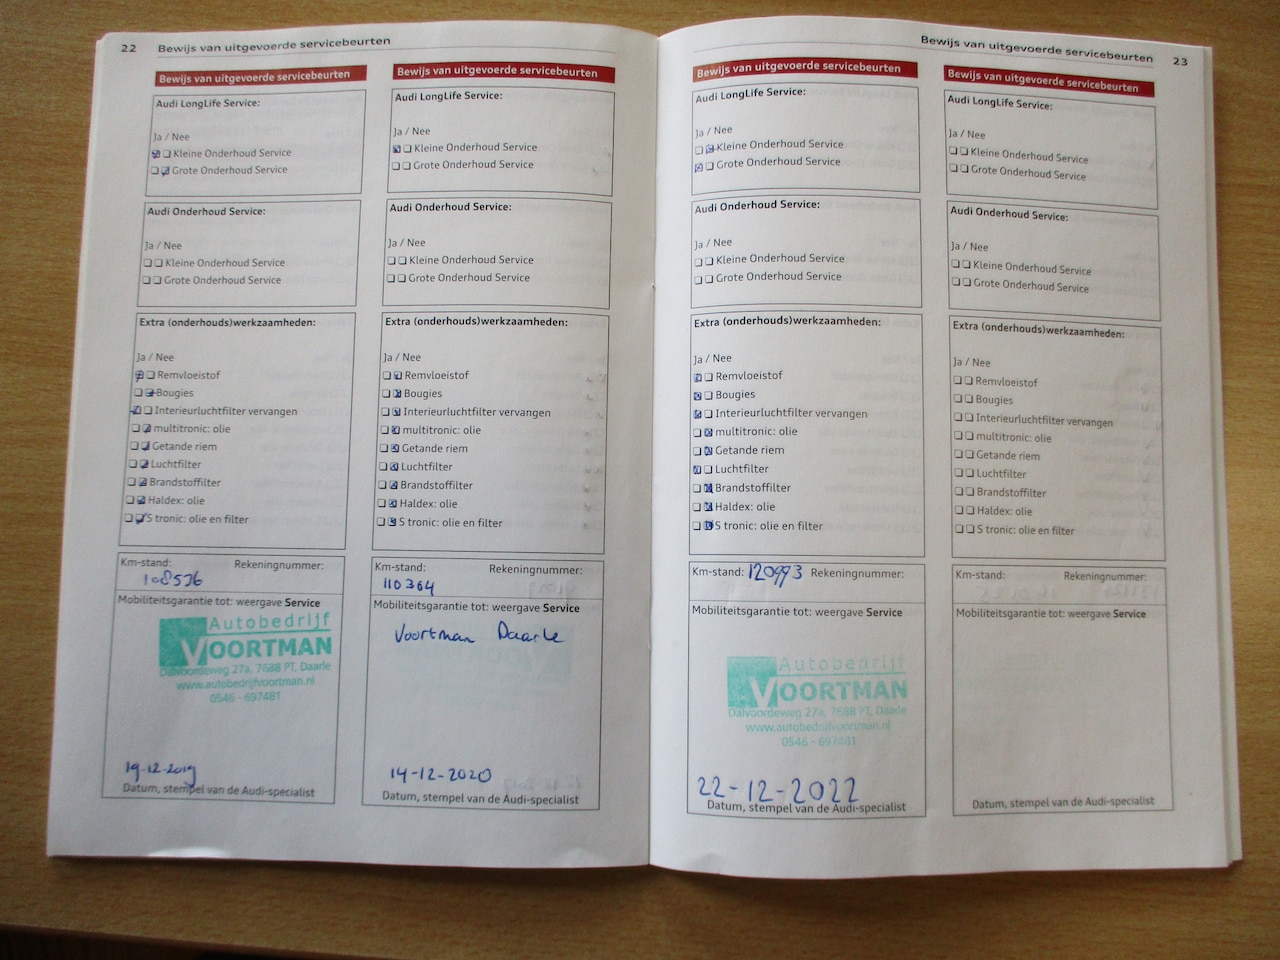 22 Bewijs van uitgevoerde servicebeurten
Bewijs van uitgevoerde servicebeurten
Audi LongLife Service:
Ja / Nee
Kleine Onderhoud Service
Grote Onderhoud Service
Audi Onderhoud Service:
Ja / Nee
Kleine Onderhoud Service
Grote Onderhoud Service
Extra (onderhouds)werkzaamheden:
Ja / Nee
Remvloeistof
Bougies
Interieurluchtfilter vervangen
multitronic: olie
Getande riem
Luchtfilter
Brandstoffilter
Haldex: olie
S tronic: olie en filter
Km-stand: Rekeningnummer:
108536
Mobiliteitsgarantie tot: weergave Service
Autobedrijf
VOORTMAN
Dalvoordeweg 27a, 7688 PT, Daarle
www.autobedrijfvoortman.nl
0546 - 697481
19-12-2019
Datum, stempel van de Audi-specialist
Bewijs van uitgevoerde servicebeurten
Audi LongLife Service:
Ja / Nee
Kleine Onderhoud Service
Grote Onderhoud Service
Audi Onderhoud Service:
Ja / Nee
Kleine Onderhoud Service
Grote Onderhoud Service
Extra (onderhouds)werkzaamheden:
Ja / Nee
Remvloeistof
Bougies
Interieurluchtfilter vervangen
multitronic: olie
Getande riem
Luchtfilter
Brandstoffilter
Haldex: olie
S tronic: olie en filter
Km-stand: Rekeningnummer:
110364
Mobiliteitsgarantie tot: weergave Service
Voortman Daarle
14-12-2020
Datum, stempel van de Audi-specialist
Bewijs van uitgevoerde servicebeurten 23
Bewijs van uitgevoerde servicebeurten
Audi LongLife Service:
Ja / Nee
Kleine Onderhoud Service
Grote Onderhoud Service
Audi Onderhoud Service:
Ja / Nee
Kleine Onderhoud Service
Grote Onderhoud Service
Extra (onderhouds)werkzaamheden:
Ja / Nee
Remvloeistof
Bougies
Interieurluchtfilter vervangen
multitronic: olie
Getande riem
Luchtfilter
Brandstoffilter
Haldex: olie
S tronic: olie en filter
Km-stand: 120993 Rekeningnummer:
Mobiliteitsgarantie tot: weergave Service
Autobedrijf
VOORTMAN
Dalvoordeweg 27a, 7688 PT, Daarle
www.autobedrijfvoortman.nl
0546 - 697481
22-12-2022
Datum, stempel van de Audi-specialist
Bewijs van uitgevoerde servicebeurten
Audi LongLife Service:
Ja / Nee
Kleine Onderhoud Service
Grote Onderhoud Service
Audi Onderhoud Service:
Ja / Nee
Kleine Onderhoud Service
Grote Onderhoud Service
Extra (onderhouds)werkzaamheden:
Ja / Nee
Remvloeistof
Bougies
Interieurluchtfilter vervangen
multitronic: olie
Getande riem
Luchtfilter
Brandstoffilter
Haldex: olie
S tronic: olie en filter
Km-stand: Rekeningnummer:
Mobiliteitsgarantie tot: weergave Service
Datum, stempel van de Audi-specialist